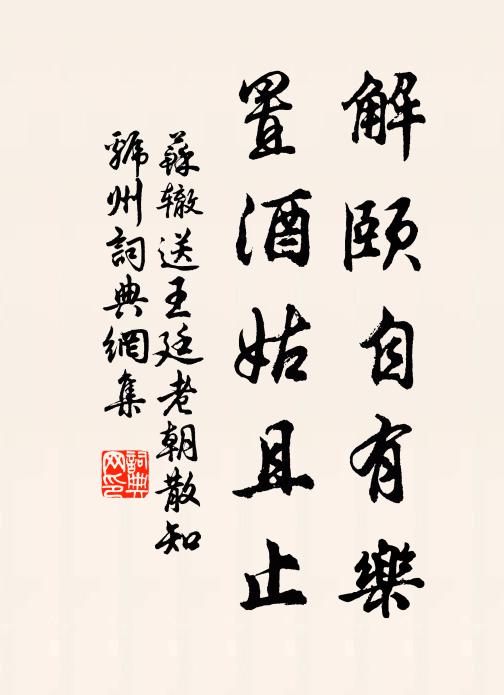 解頤自有樂
置酒姑且止
蘇辙送王廷老朝散知
虢州詞典網集
詞典网印